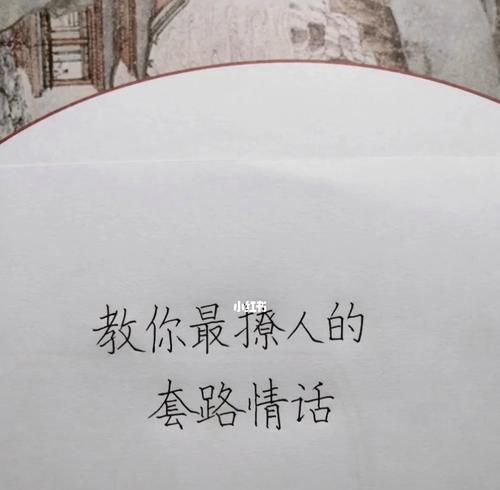 小红书
教你最撩人的
套路情话